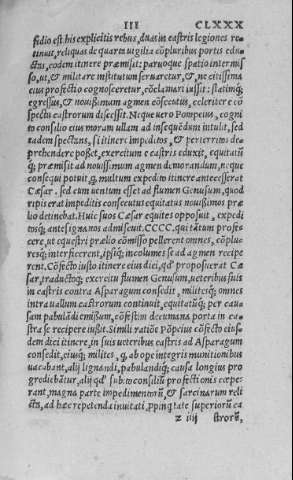 III CLXXX
sidio est. his explicitis rebus, duas in castris legiones re
tinuit, reliquas de quarta uigilia cõpluribus portis edu
ctas, eodem itinere præmisit: paruoque spatio intermis
so, ut, & militare institutum seruaretur, & ne citissima
eius profectio cognosceretur, cõclamari iussit: statimq;
egressus, & nouissimum agmen cõsecutus, celeriter è cõ
spectu castrorum discessit. Neque uero Pompeius, cogni
to consilio eius moram ullam ad insequẽdum intulit, sed
eadem spectans, si itinere impeditos, & perterritos de=
prehendere posset, exercitum e castris eduxit, equitatũ
q; præmisit ad nouissimum agmen demorandum, neque
consequi potuit, q multum expedito itinere antecesserat
Cæsar. sed cum uentum esset ad flumen Genusum, quod
ripis erat impeditis consecutus equitatus nouissimos præ
lio detinebat. Huic suos Cæsar equites opposuit, expedi
tosq; antesignanos admiscuit. CCCC. qui tãtum profe=
cere, ut equestri prælio cõmisso pellerent omnes, cõplu=
resq; interficerent, ipsiq; incolumes se ad agmen recipe
rent. Cõfecto iusto itinere eius diei, qđ proposuerat Cæ
sar, traductoq; exercitu flumen Genusum, ueteribus suis
in castris contra Asparagum consedit, militesq; omnes
intra uallum castrorum continuit, equitatũq; per cau=
sam pabulãdi emissum, cõfestim decumana porta in ca=
stra se recipere iußit. Simili ratiõe Põpeius cõfecto eius=
dem diei itinere, in suis ueteribus castris ad Asparagum
consedit, eiusq; milites, q, ab ope integris munitionibus
uacabant, alij lignandi, pabulandiq; causa longius pro
grediebãtur, alij qđ subito consiliũ profectionis cœpe=
rant, magna parte impedimentorũ, & sarcinarum reli
ctis, ad hæc repetenda inuitati, ppinq̃tate superiorũ ca
z iiij strorũ,